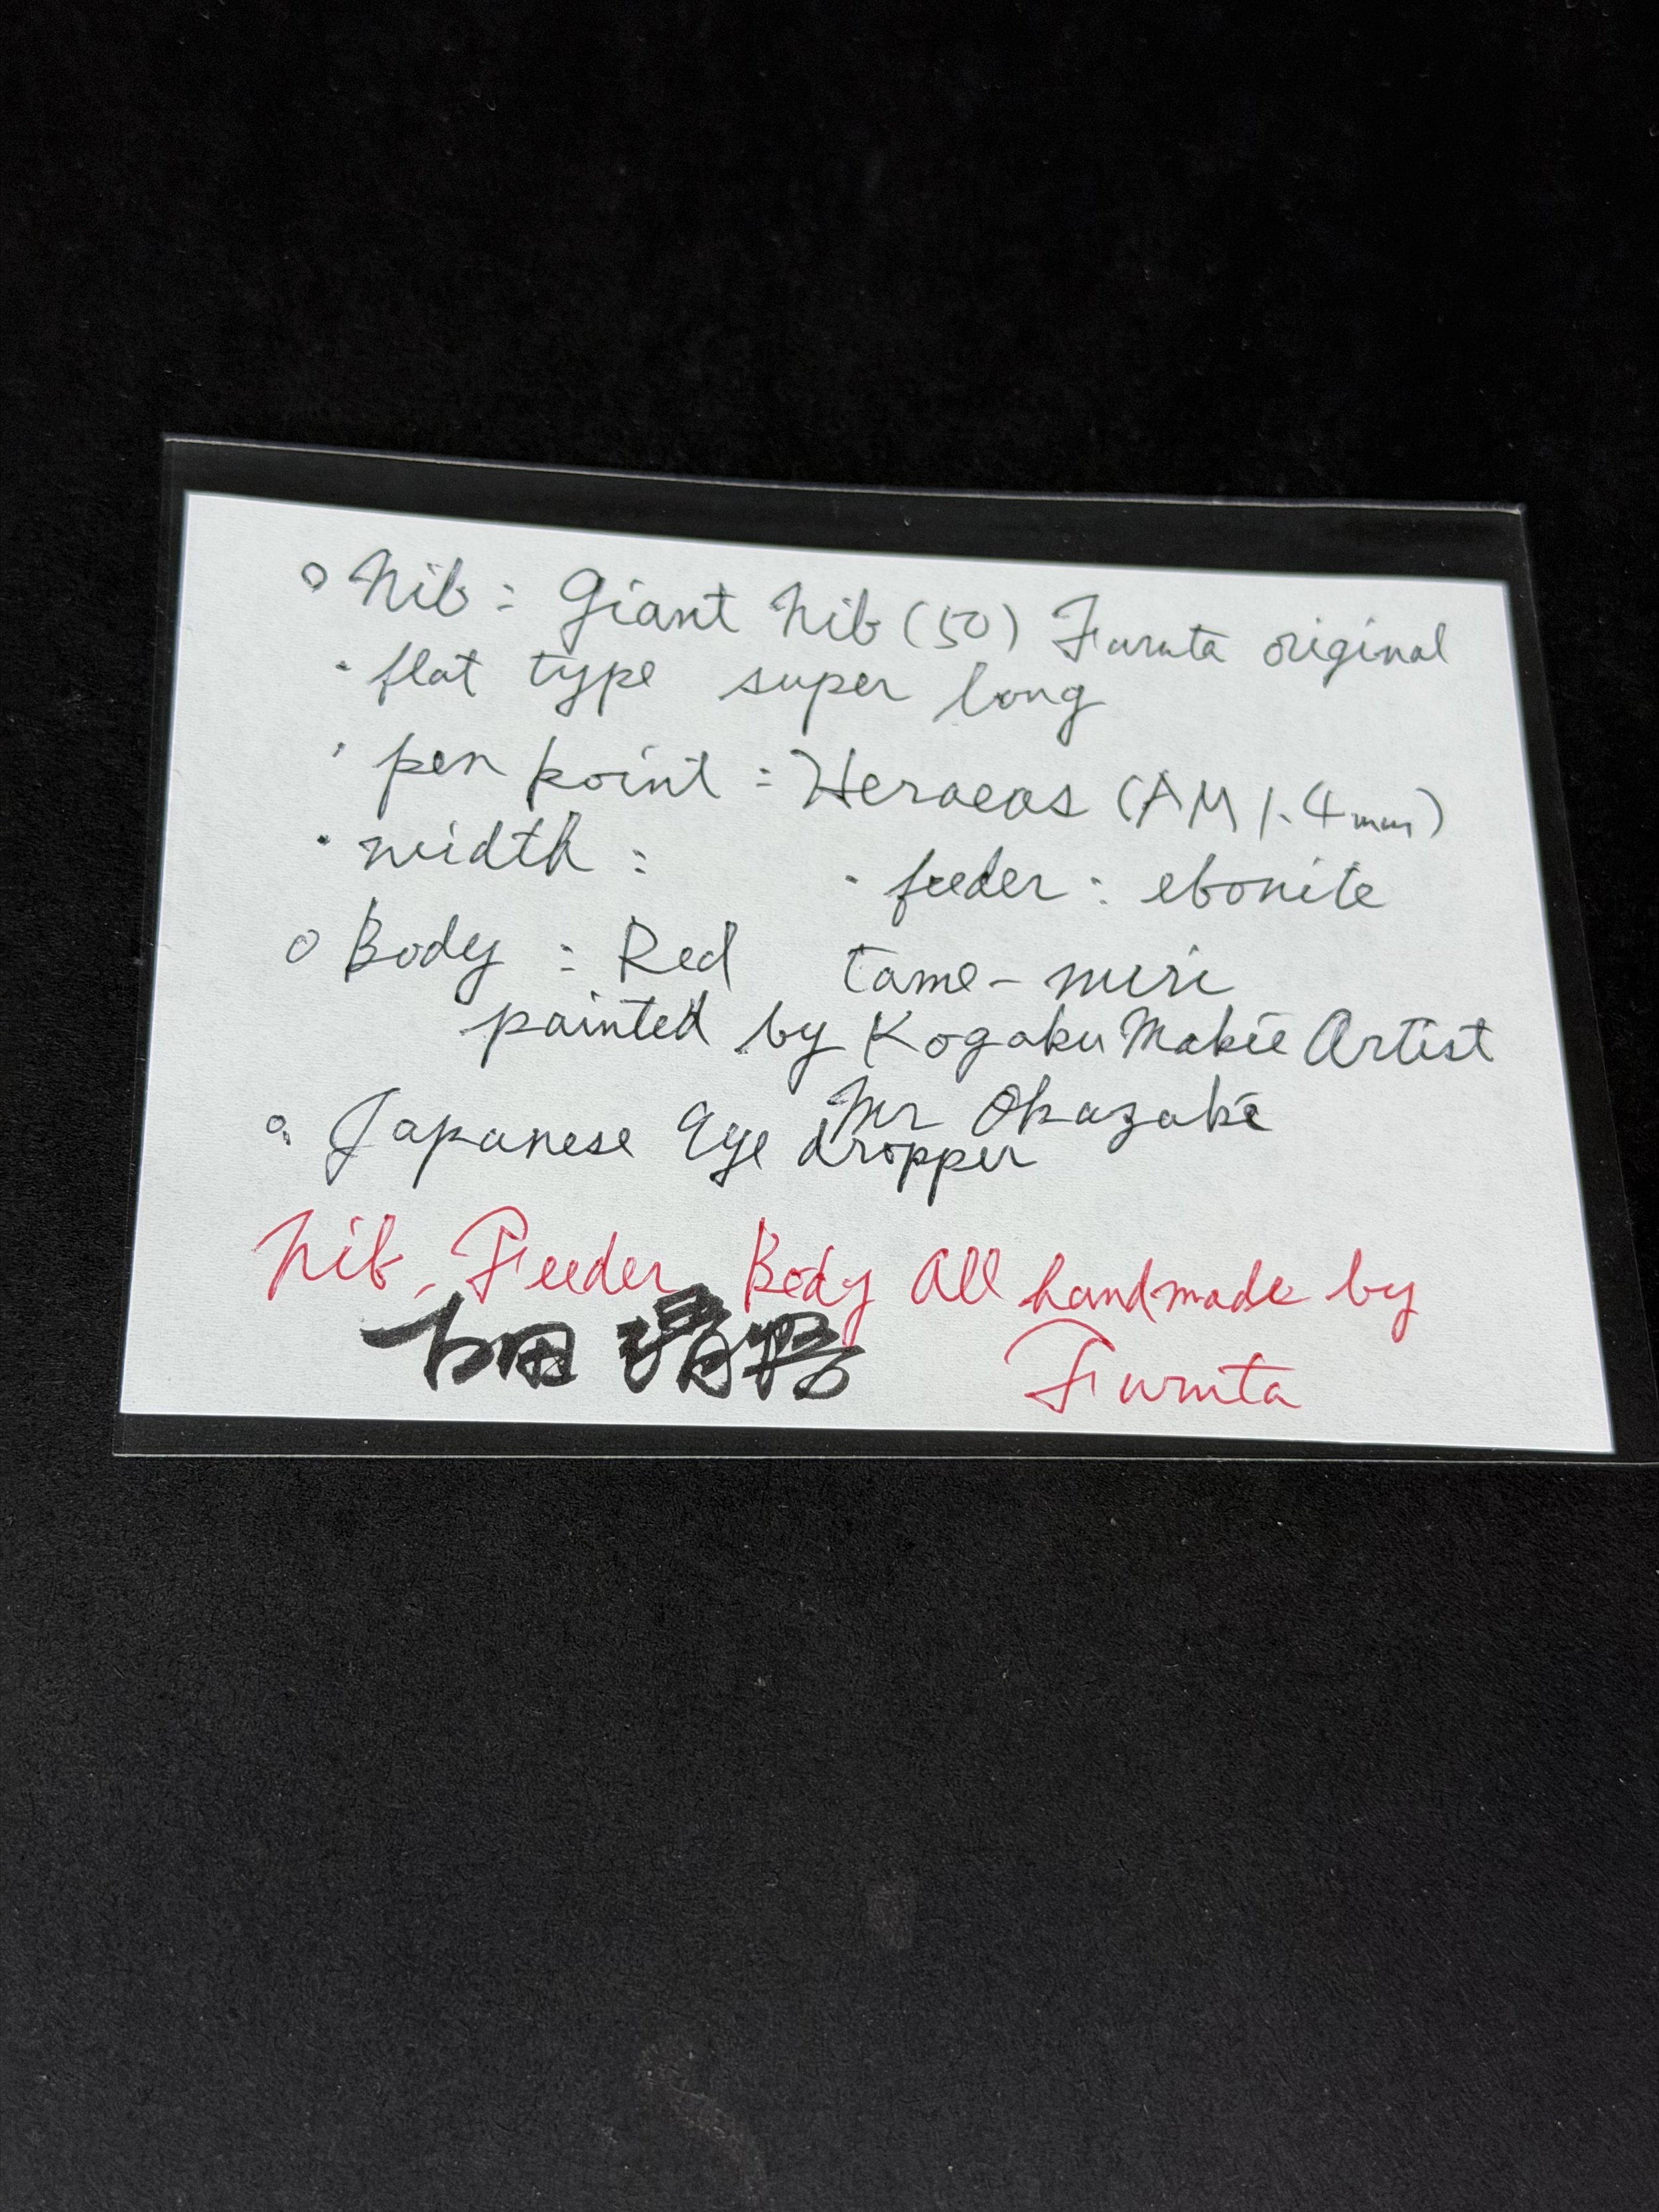 ○ Nib : Giant Nib (50) Furuta original
・flat type super long
・pen point : Heraeas (AM 1.4mm)
・width : ・feeder : ebonite
○ Body : Red tame-nuri
painted by Kogaku Makie Artist
Mr Okazaki
○ Japanese Eye dropper
Nib, Feeder, Body All handmade by
古田 Furuta